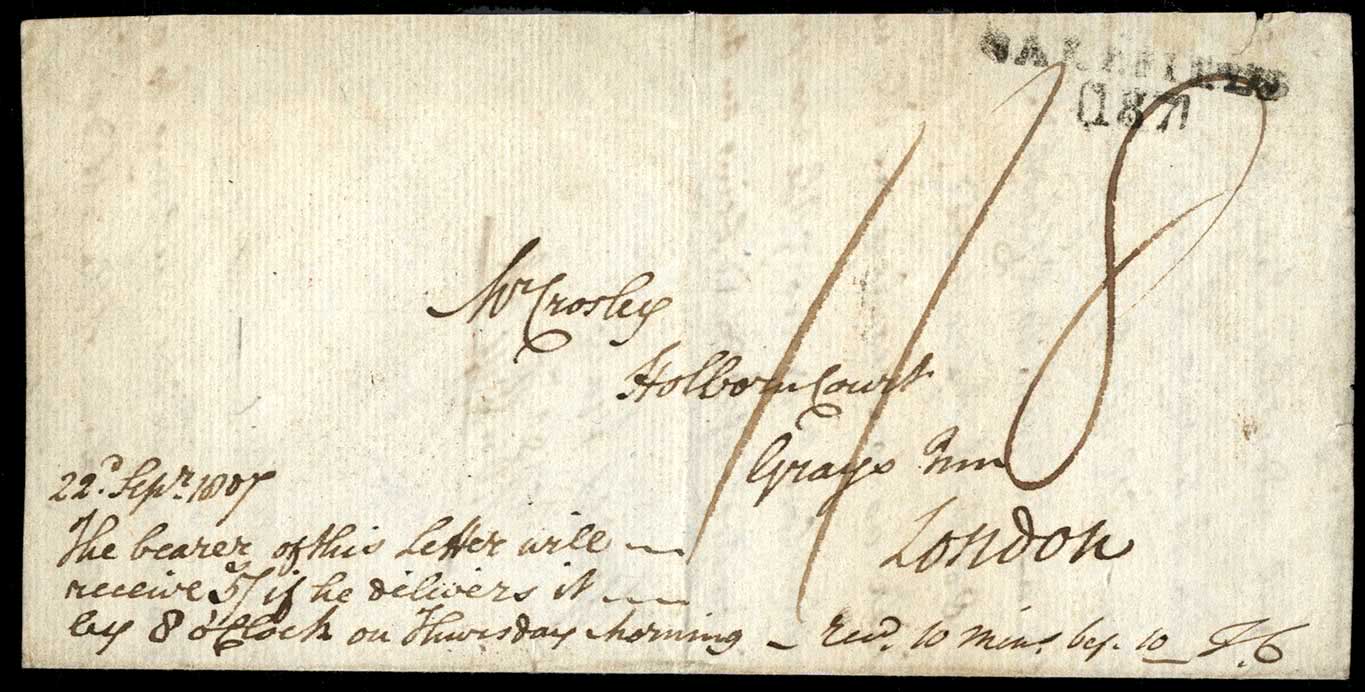 WAKEFIELD
(187)
11/8
Mr Crosley
Holborn Court
Grays Inn
London
22d. Sepr. 1807
The bearer of this Letter will
receive 5/ if he delivers it
by 8 o'Clock on Thursday Morning – recd. 10 Mins. bef. 10 – J.C